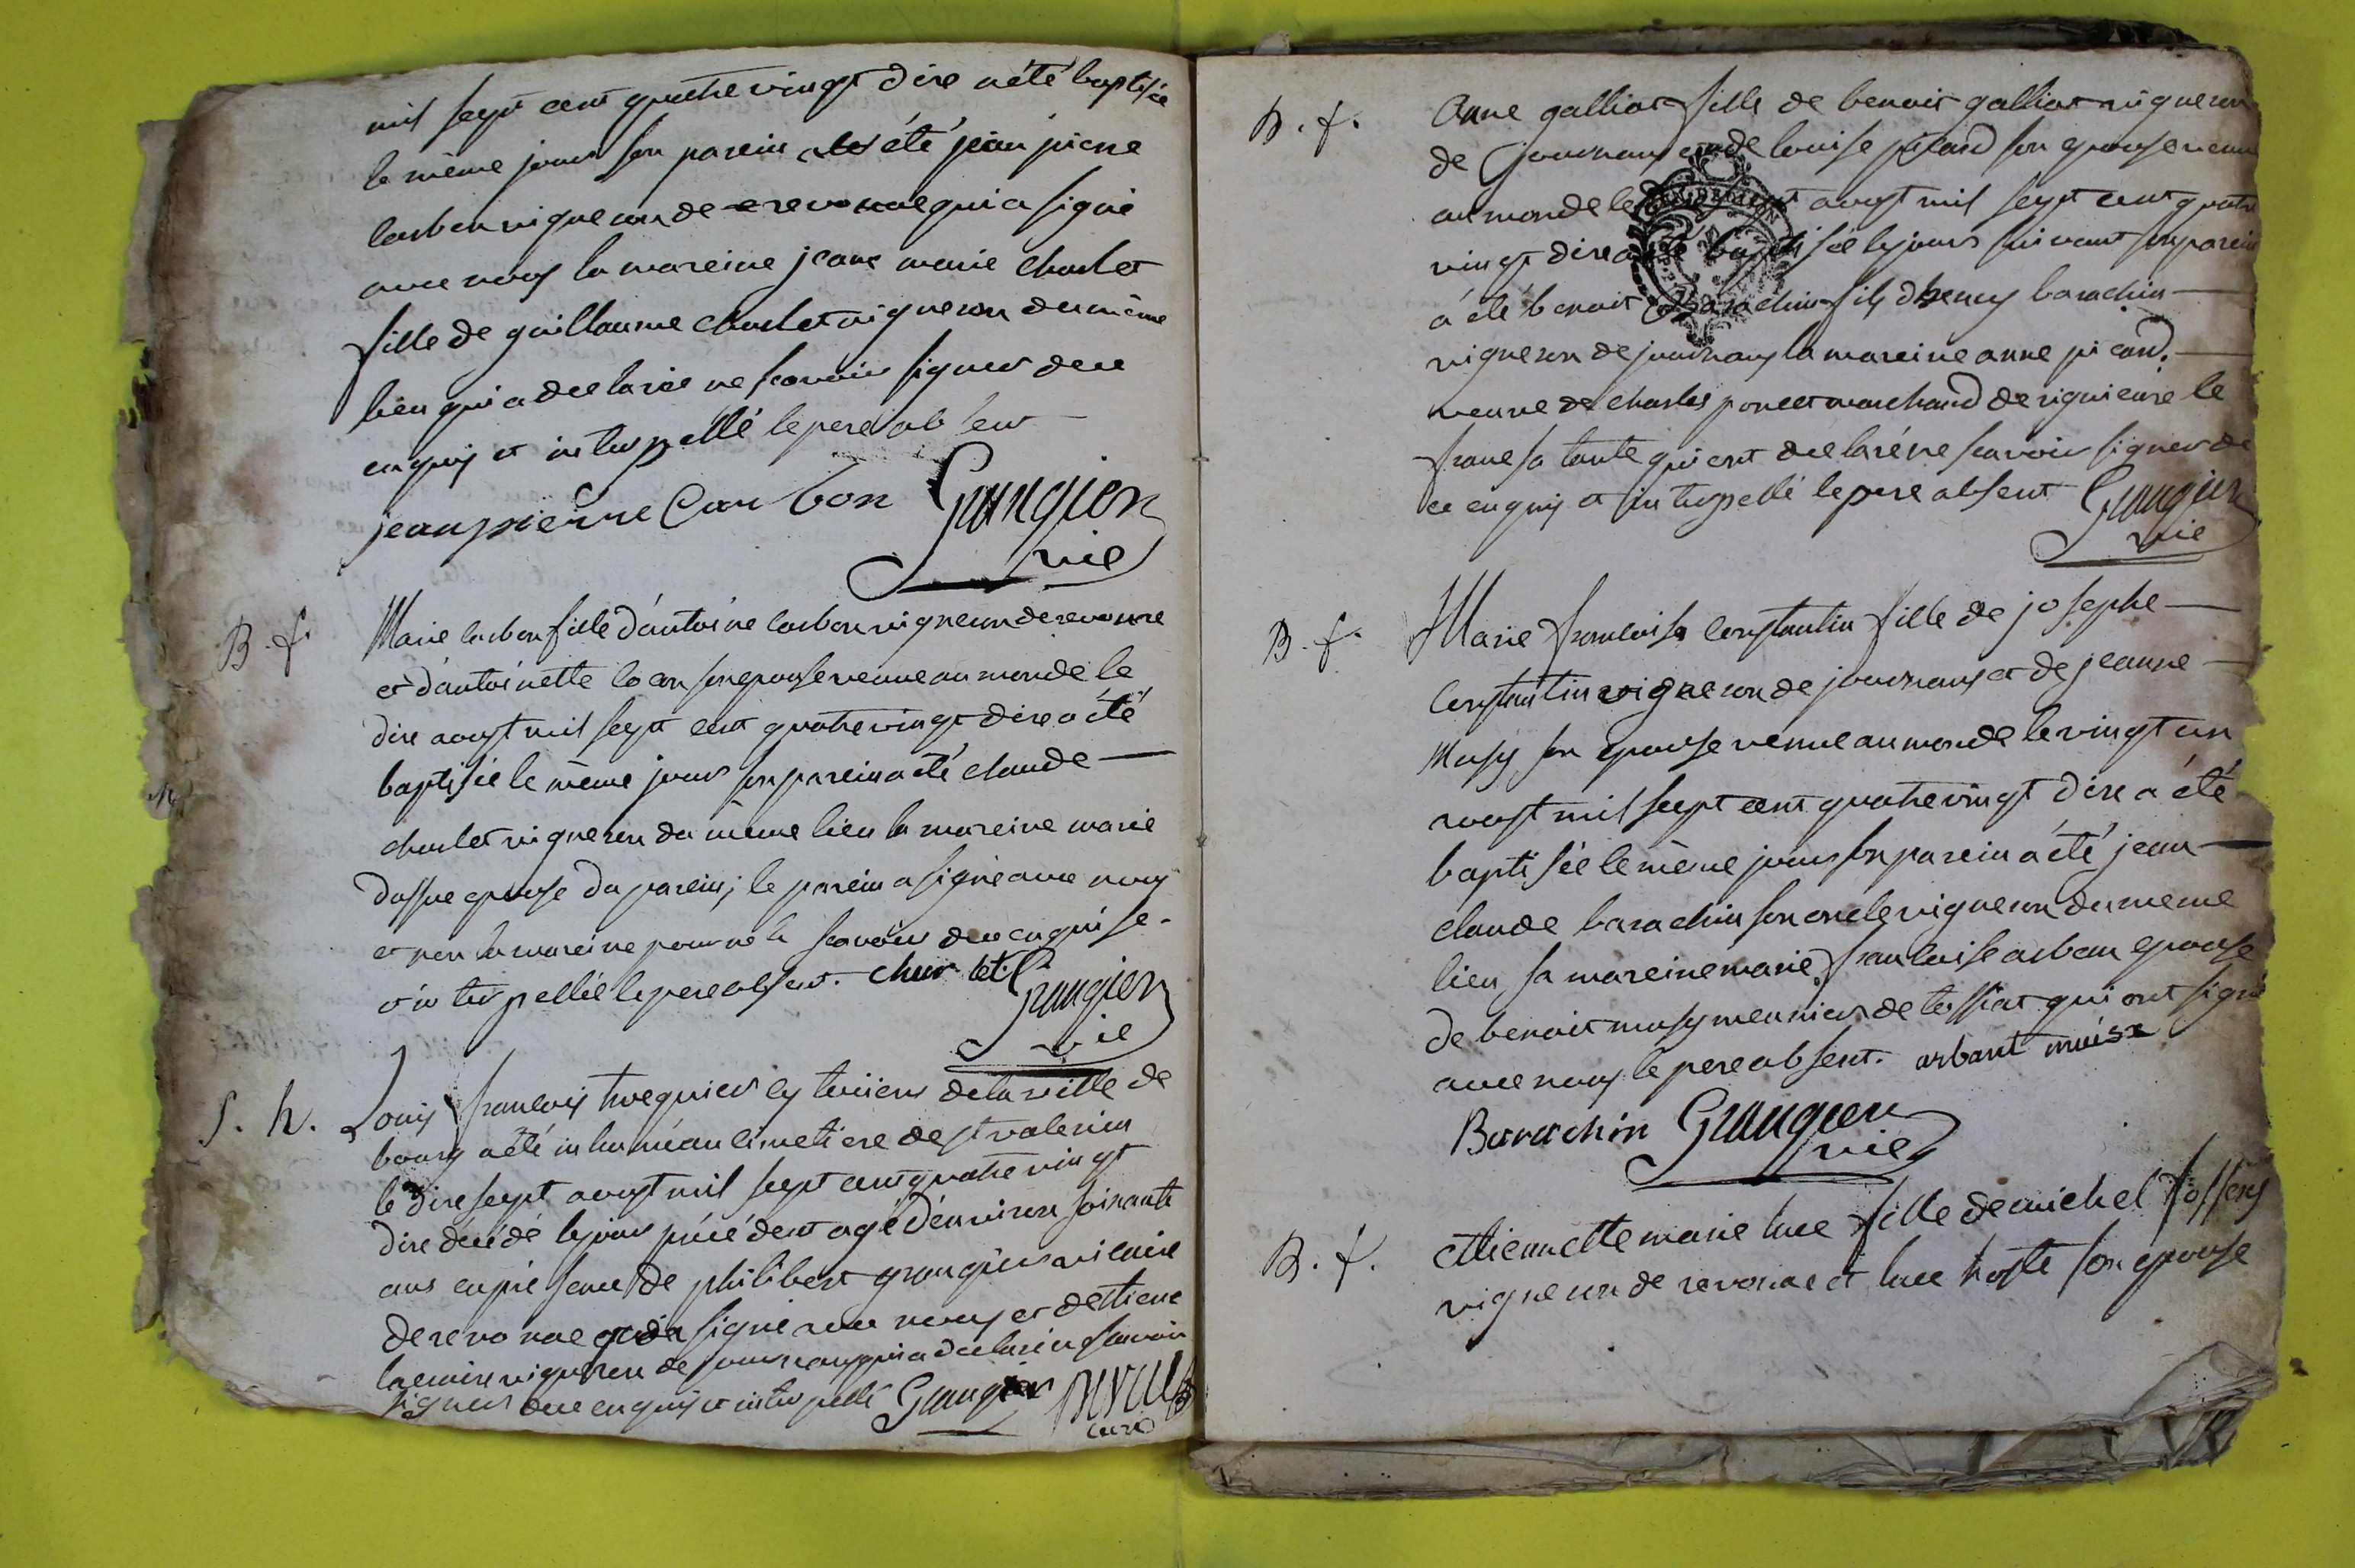 mil sept cent quatre vingt dixe a été baptisée
le même jour son parein a été jean pierre
carbon vigneron de revonnae qui a signé
avec nous la mareine jeane marie charlet
fille de guillaume charlet vigneron du même
lieu qui a declarée ne scavoir signer de ce
enquis et interpellé le pere absent
jeanpierre Carbon Grangier
vic
B. f. Marie carbon fille d'antoine carbon vigneron de revonnae
et d'antoinette son epouse venue au monde le
dixe aoust mil sept cent quatre vingt dixe a été
baptisée le même jour son parein a été claude
charlet vigneron du même lieu la mareine marie
epouse du parein; le parein a signé avec nous
et non la mareine pour ne le scavoir de ce enquise
et interpellée le pere absent. charlet Grangier
vic
S. h. Louis françois de la ville de
bourg a été inhumé au cimetiere de st valerien
le dixe sept aoust mil sept cent quatre vingt
dixe décédé le jour précédent agé d'environ soixante
ans en présence de philibert grangier vicaire
de revonnae qui a signé avec nous et d'ettiene
vigneron de journans qui a declaré ne scavoir
signer de ce enquis et interpellé Grangier
curé
B. f. Anne galliot fille de benoit galliot vigneron
de journans et de louise picard son epouse venue
au monde le aoust mil sept cent quatre
vingt dixe a été baptisée le jour suivant son parein
a été benoit Barachin fils d'henry barachin
vigneron de journans la mareine anne picard
veuve de charles poncet marchand de rignieux le
franc sa tante qui ont declaré ne scavoir signer de
ce enquis et interpellé le pere absent Grangier
vic
B. f. Marie francoise constantin fille de josephe
constantin vigneron de journans et de jeanne
Musy son epouse venue au monde le vingt un
aoust mil sept cent quatre vingt dixe a été
baptisée le même jour son parein a été jean
claude barachin son oncle vigneron du meme
lieu, sa mareine marie francoise arban epouse
de benoit musy meunier de tossiat qui ont signé
avec nous le pere absent. arbant
Barachin Grangier
vic
B. f. Ettiennette marie luce fille de michel
vigneron de revonae et luce son epouse